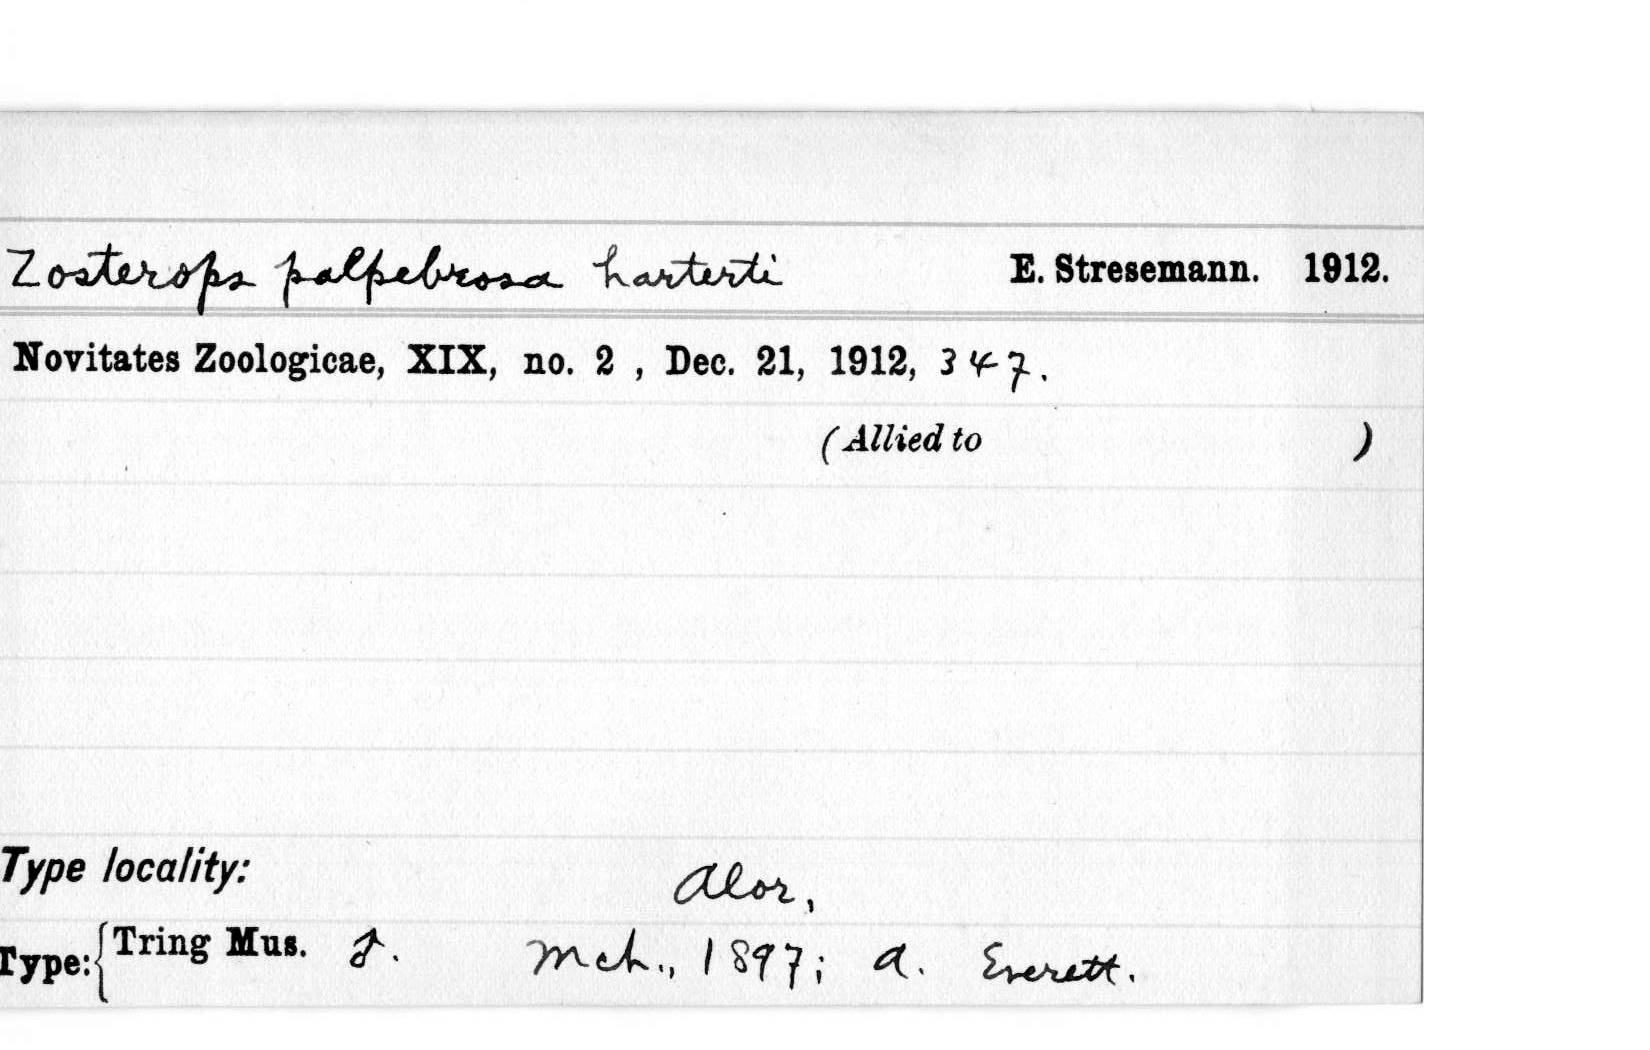 Zosterops palpebrosa harterti E. Stresemann. 1912.
Novitates Zoologicae, XIX, no. 2 , Dec. 21, 1912, 347.
(Allied to )
Type locality: Alor,
Type: { Tring Mus. ♂. Mch., 1897; A. Everett.